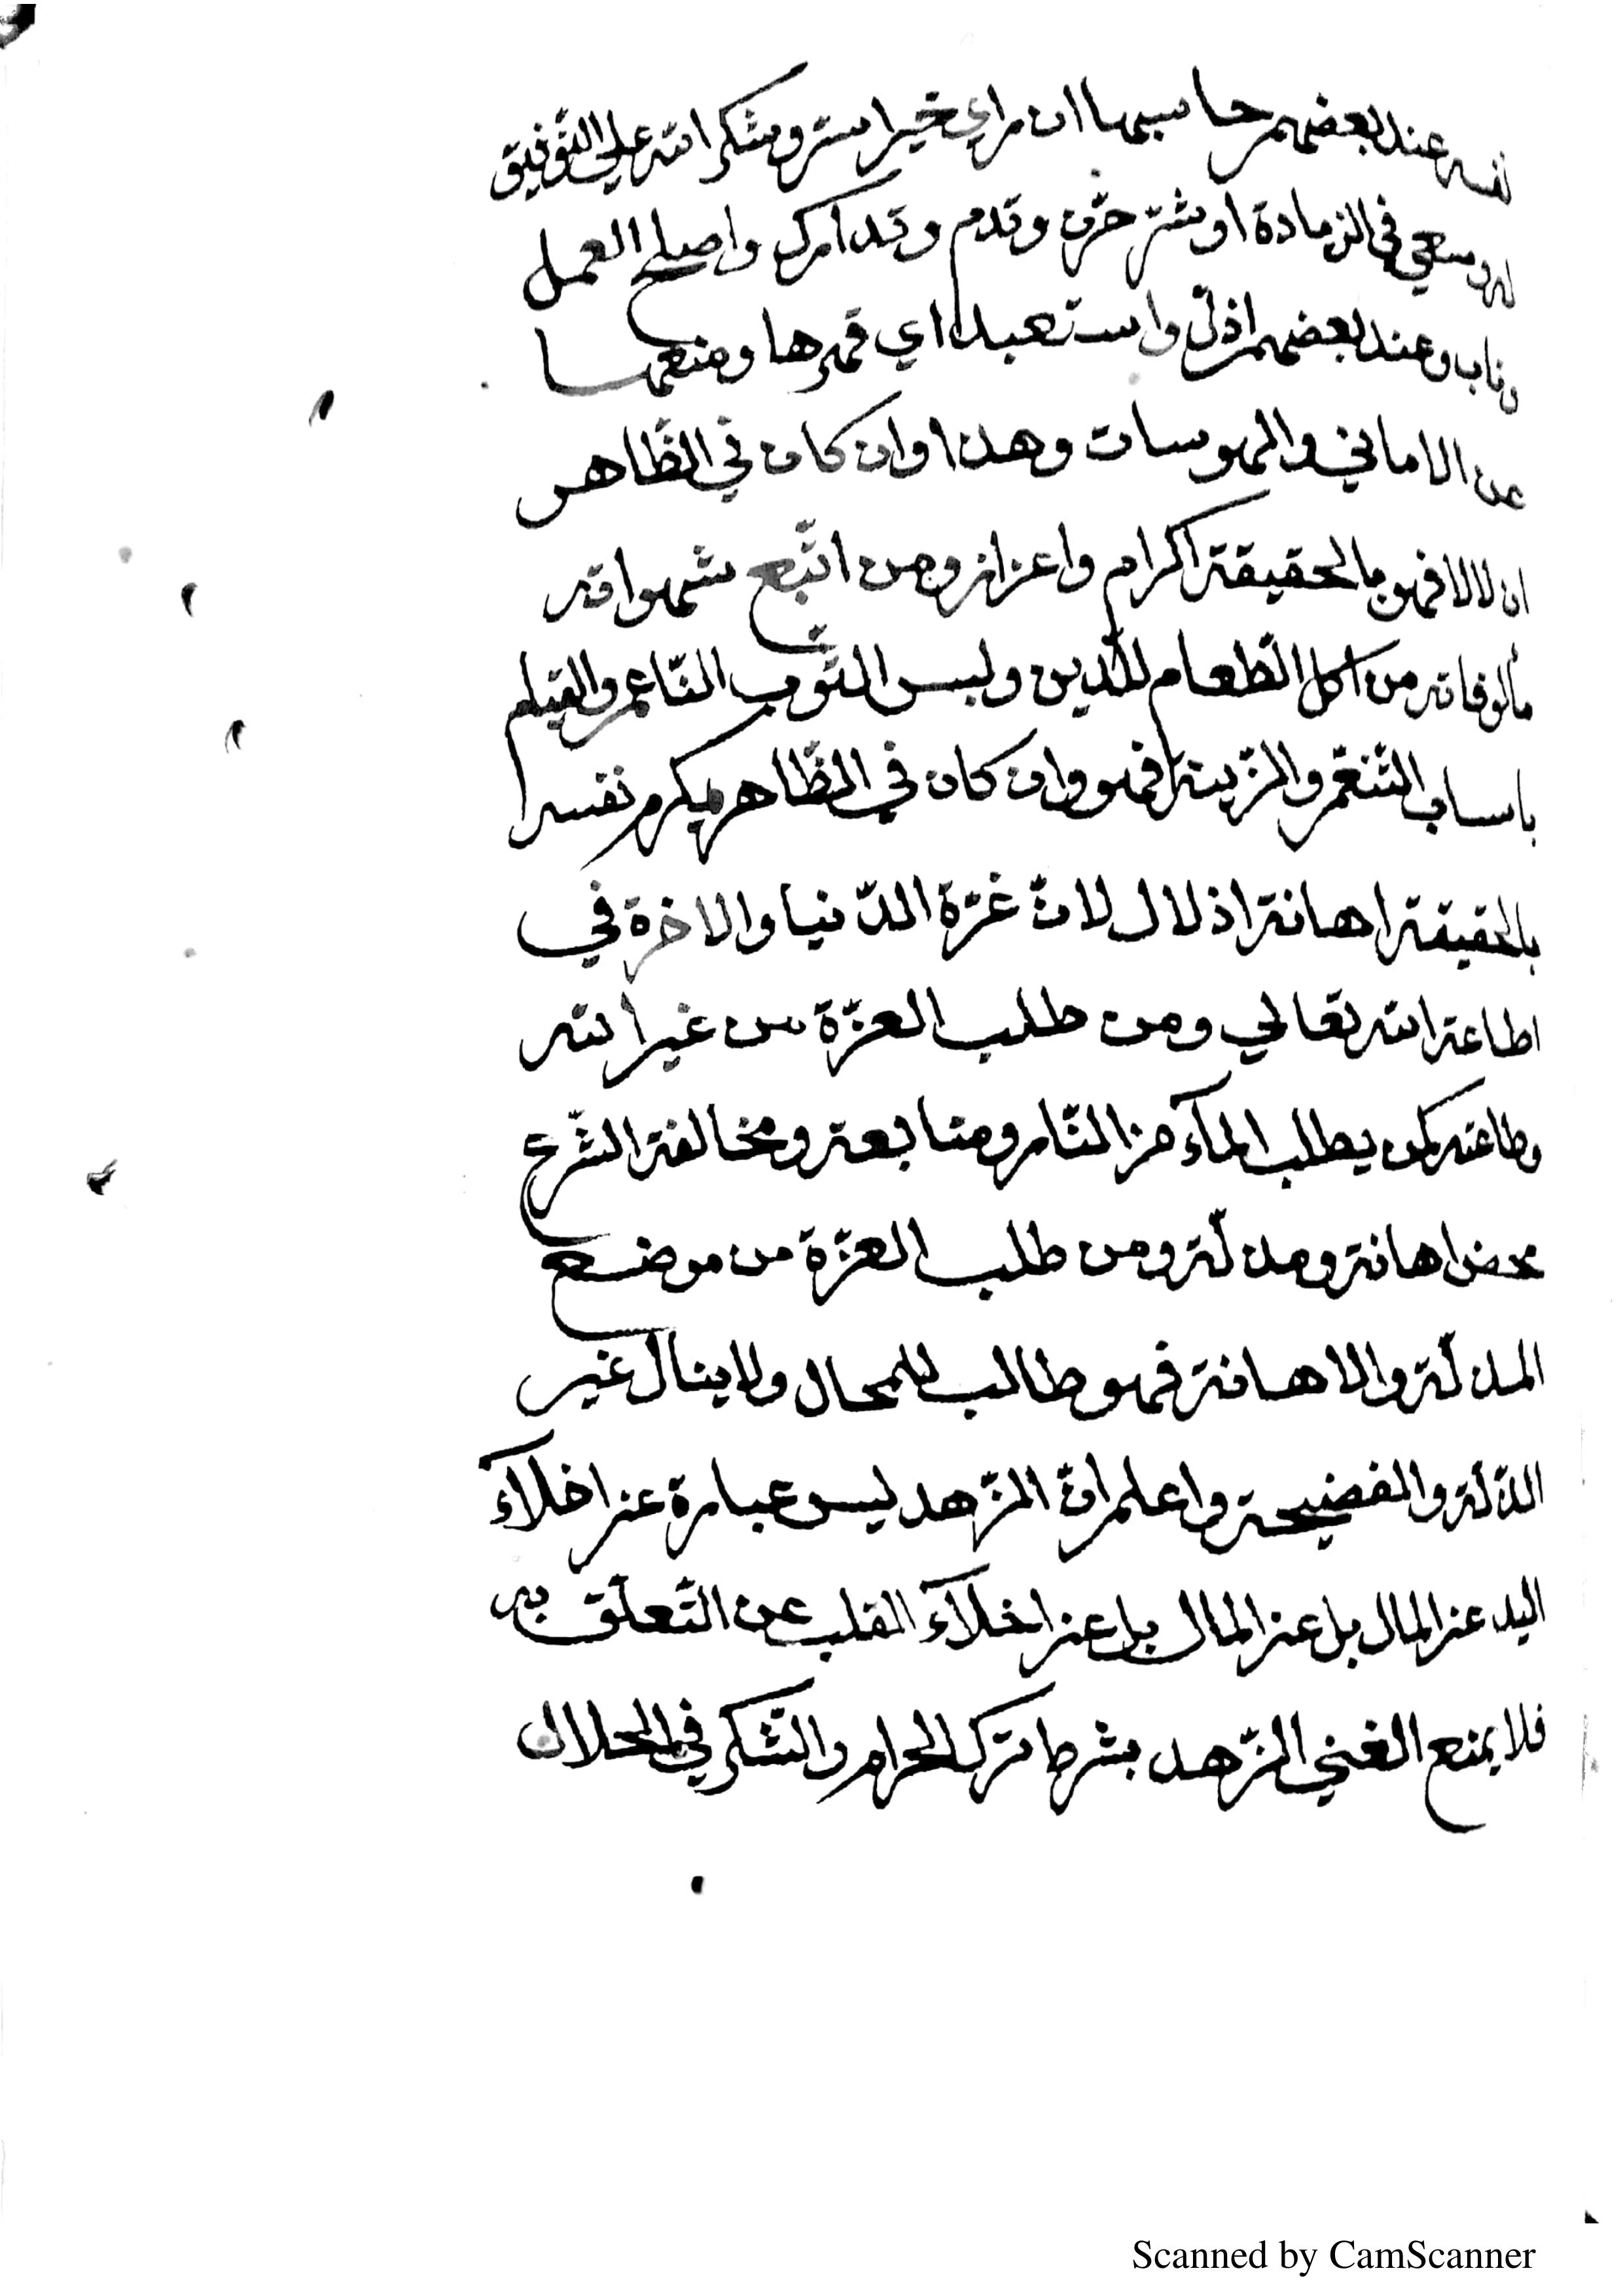 نفسه عند بعضهم حاسبها ان راي خيرا سر وشكر الله علي التوفيق
له وسعي في الزيادة او شرّ حزن وندم وتدارك واصلح العمل
وتاب وعند بعضهم اذلّ واستعبد اي قهرها ومنعها
عن الاماني والهوسات وهذا وان كان في الظّاهر
اذلالا فهو بالحقيقة اكرام واعزاز ومن اتّبع شهواته
مألوفاته من اكل الطّعام اللّذيذ ولبس الثّوب النّاعم و
باسباب التّنعّم والزّينة فهو وان كان في الظّاهر يكرم نفسه
بالحقيقة اهانة اذلال لانّ عزّة الدّنيا والاخرة في
اطاعة الله تعالي ومن طلب العزّة من غير الله
وطاعته كمن يطلب المآء من النّار ومتابعة ومخالفة الشّرع
محض اهانة ومذلّة ومن طلب العزّة من موضع
المذلّة والاهانة فهو طالب للمحال ولا ينال غير
الذّلّة والفضيحة واعلم انّ الزّهد ليس عبارة عن اخلآء
اليد عن المال بل عن المال بل عن اخلآء القلب عن التّعلّق به
فلا يمنع الغني الزّهد بشرط ترك الحرام والشّكر في الحلال
Scanned by CamScanner